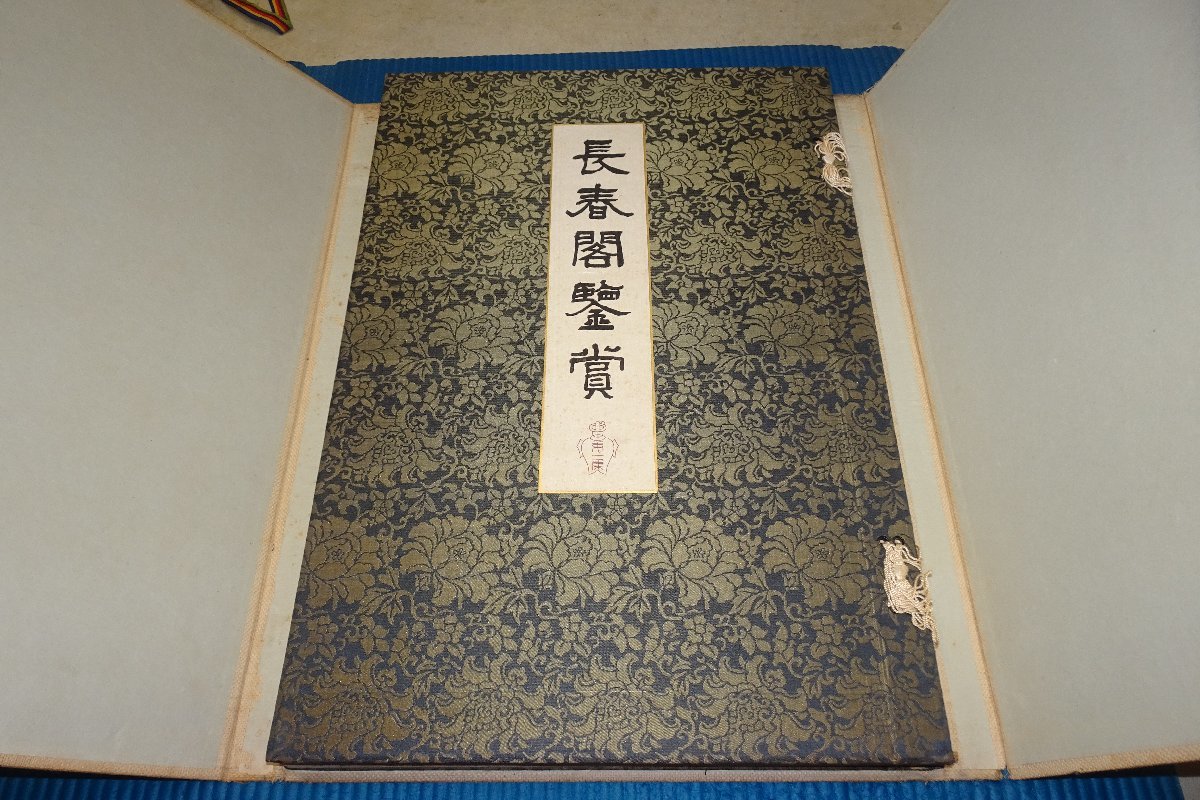 長春閣鑒賞